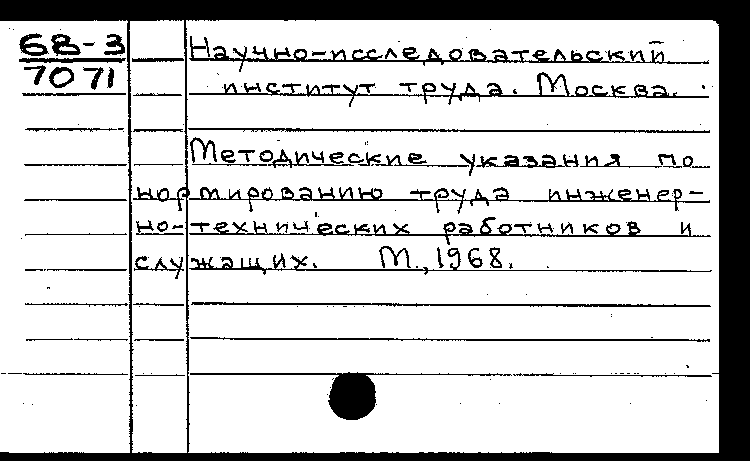 68-3
7071
Научно-исследовательский
институт труда. Москва.
Методические указания по
нормированию труда инженер-
но-технических работников и
служащих. М., 1968.